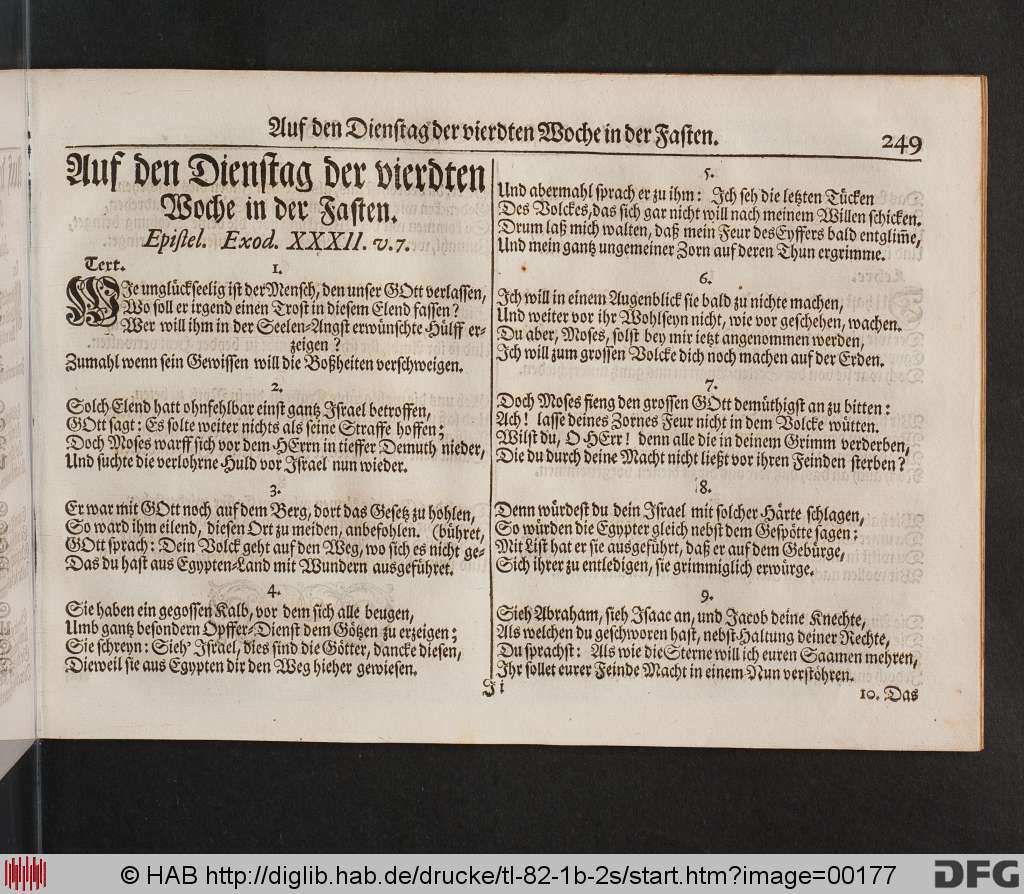 Auf den Dienstag der vierdten Woche in der Fasten.
249
Auf den Dienstag der vierdten
Woche in der Fasten.
Epistel. Exod. XXXII. v. 7.
Text.
1.
WJe unglückseelig ist der Mensch, den unser GOtt verlassen,
Wo soll er irgend einen Trost in diesem Elend fassen?
Wer will ihm in der Seelen-Angst erwünschte Hülff er-
zeigen?
Zumahl wenn sein Gewissen will die Boßheiten verschweigen.
2.
Solch Elend hatt ohnfehlbar einst gantz Jsrael betroffen,
GOtt sagt: Es solte weiter nichts als seine Straffe hoffen;
Doch Moses warff sich vor dem HErrn in tieffer Demuth nieder,
Und suchte die verlohrne Huld vor Jsrael nun wieder.
3.
Er war mit GOtt noch auf dem Berg, dort das Gesetz zu hohlen,
So ward ihm eilend, diesen Ort zu meiden, anbefohlen. (bühret,
GOtt sprach: Dein Volck geht auf den Weg, wo sich es nicht ge-
Das du hast aus Egypten-Land mit Wundern ausgeführet.
4.
Sie haben ein gegossen Kalb, vor dem sich alle beugen,
Umb gantz besondern Opffer-Dienst dem Götzen zu erzeigen;
Sie schreyn: Sieh' Jsrael, dies sind die Götter, dancke diesen,
Dieweil sie aus Egypten dir den Weg hieher gewiesen.
5.
Und abermahl sprach er zu ihm: Jch seh die letzten Tücken
Des Volckes, das sich gar nicht will nach meinem Willen schicken.
Drum laß mich walten, daß mein Feur des Eyffers bald entglim̃e,
Und mein gantz ungemeiner Zorn auf deren Thun ergrimme.
6.
Jch will in einem Augenblick sie bald zu nichte machen,
Und weiter vor ihr Wohlseyn nicht, wie vor geschehen, wachen.
Du aber, Moses, solst bey mir ietzt angenommen werden,
Jch will zum grossen Volcke dich noch machen auf der Erden.
7.
Doch Moses fieng den grossen GOtt demüthigst an zu bitten:
Ach! lasse deines Zornes Feur nicht in dem Volcke wütten.
Wilst du, O HErr! denn alle die in deinem Grimm verderben,
Die du durch deine Macht nicht ließt vor ihren Feinden sterben?
8.
Denn würdest du dein Jsrael mit solcher Härte schlagen,
So würden die Egypter gleich nebst dem Gespötte sagen:
Mit List hat er sie ausgeführt, daß er auf dem Gebürge,
Sich ihrer zu entledigen, sie grimmiglich erwürge.
9.
Sieh Abraham, sieh Jsaac an, und Jacob deine Knechte,
Als welchen du geschworen hast, nebst Haltung deiner Rechte,
Du sprachst: Als wie die Sterne will ich euren Saamen mehren,
Jhr sollet eurer Feinde Macht in einem Nun verstöhren.
J i
10. Das
© HAB http://diglib.hab.de/drucke/tl-82-1b-2s/start.htm?image=00177
DFG